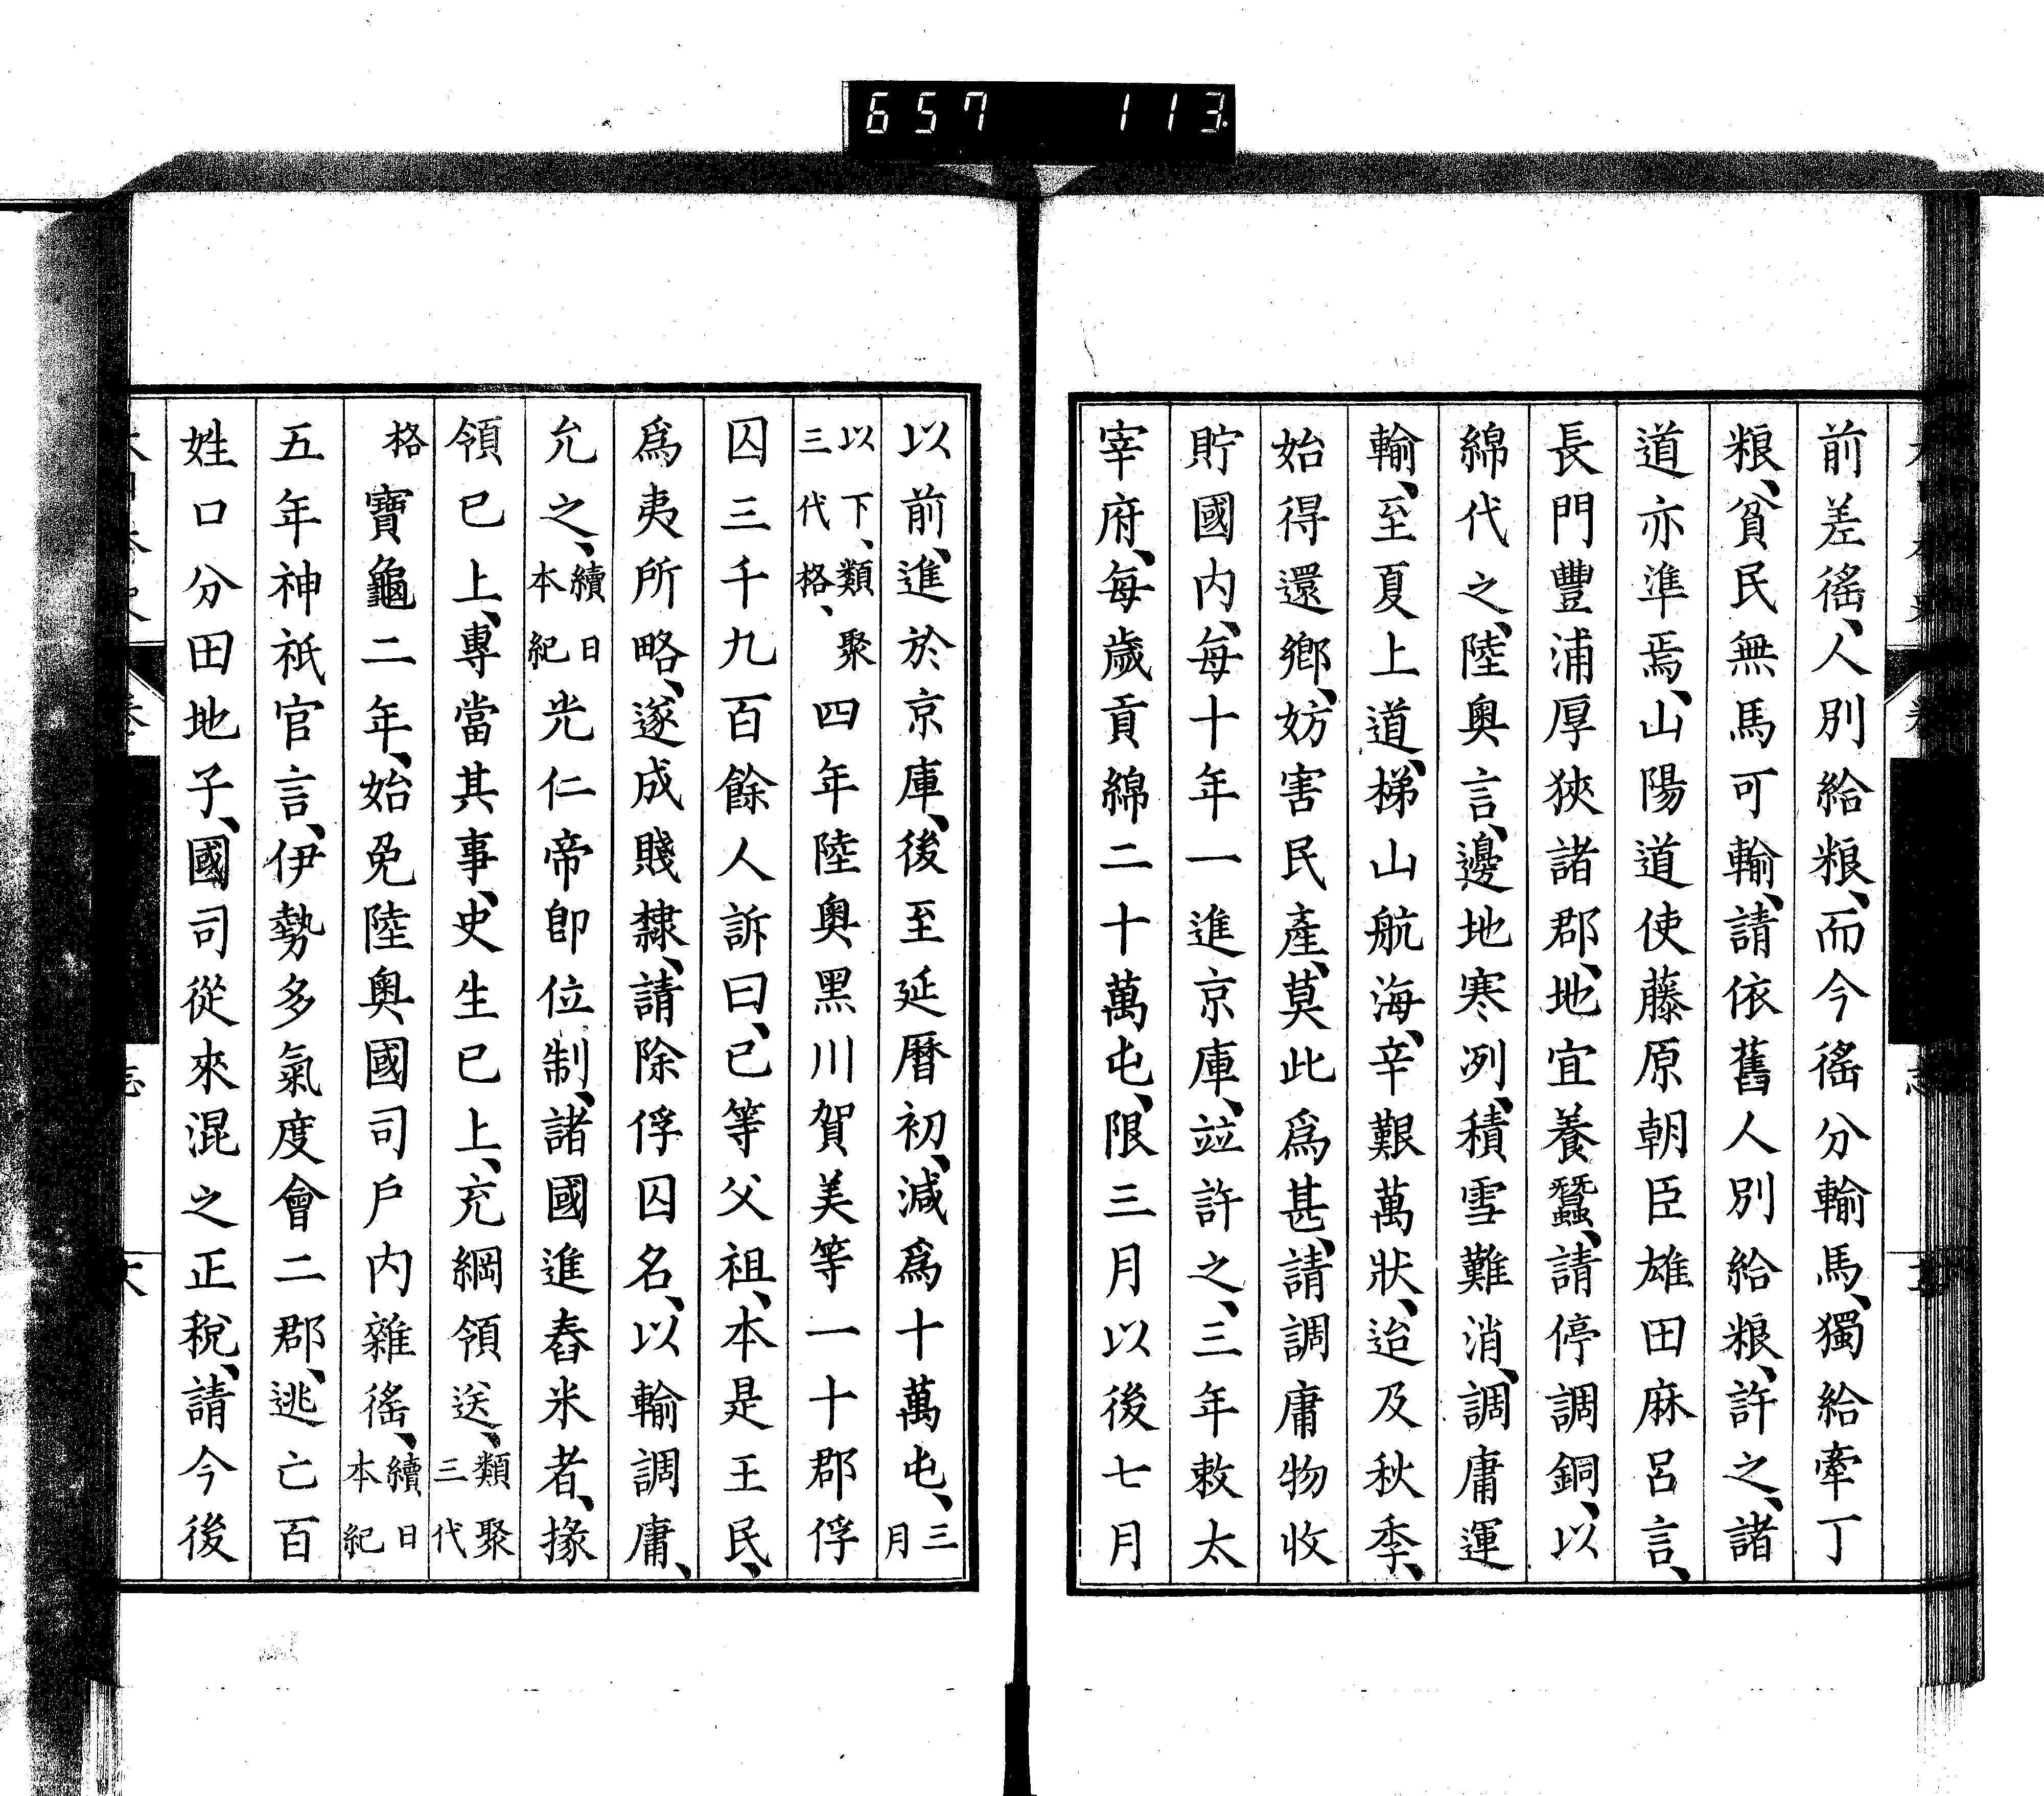 657 113
前差徭、人別給粮、而今徭分輸馬、獨給牽丁
粮、貧民無馬可輸、請依舊人別給粮、許之、諸
道亦準焉、山陽道使藤原朝臣雄田麻呂言、
長門豐浦厚狹諸郡、地宜養蠶、請停調銅、以
綿代之、陸奧言、邊地寒冽、積雪難消、調庸運
輸、至夏上道、梯山航海、辛艱萬狀、迨及秋季、
始得還鄉、妨害民產、莫此爲甚、請調庸物收
貯國内、每十年一進京庫、竝許之、三年敕太
宰府、每歲貢綿二十萬屯、限三月以後七月
以前、進於京庫、後至延曆初、減爲十萬屯、三月
以下、類聚三代格、四年陸奧黑川賀美等一十郡俘
囚三千九百餘人訴曰、已等父祖、本是王民、
爲夷所略、遂成賤隸、請除俘囚名、以輸調庸、
允之、續日本紀光仁帝卽位制、諸國進舂米者、掾
領已上、專當其事、史生已上、充綱領送、類聚三代
格寶龜二年、始免陸奧國司戶内雜徭、續日本紀
五年神祇官言、伊勢多氣度會二郡、逃亡百
姓口分田地子、國司從來混之正稅、請今後